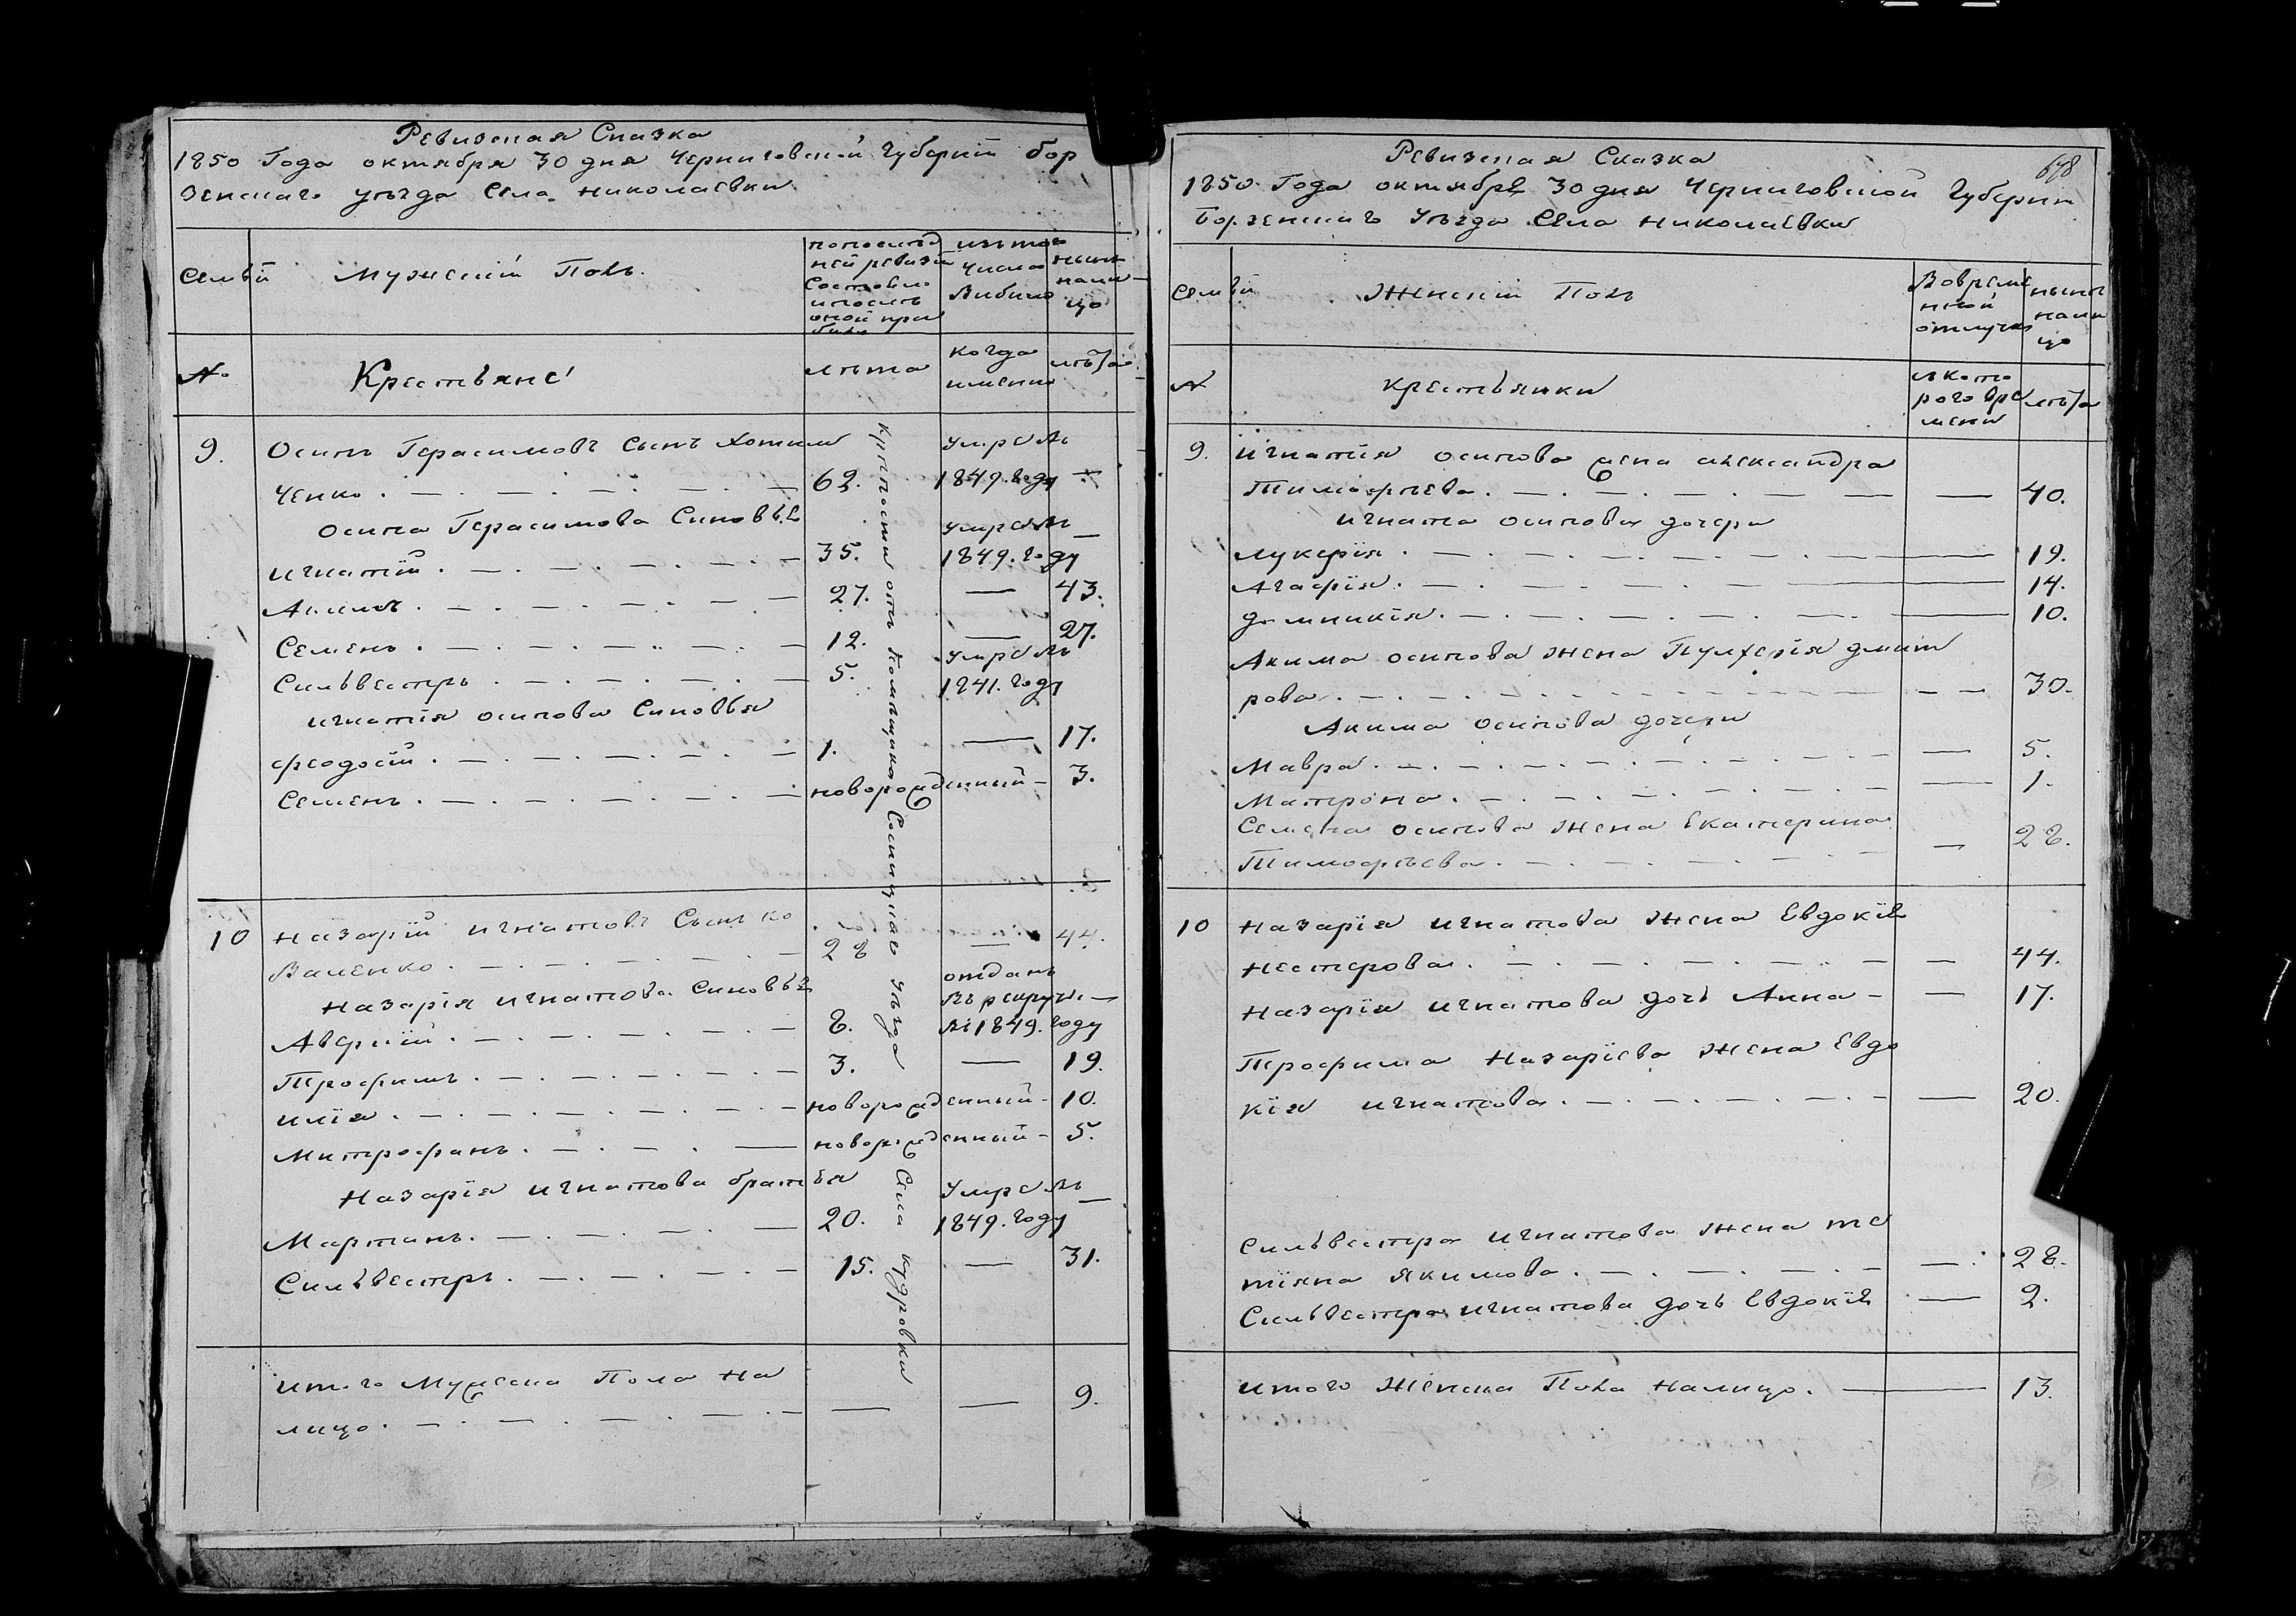 Ревизская Сказка
1850 Года октября 30 дня Черниговской Губернии Бор
зенскаго уѣзда Села Николаевки
Семьи
Мужеский Полъ
по послѣд
ней ревизи
Состояло
и послѣ
оной при
было
изъ того
числа
Выбыло
нынѣ
нали
цо
№
Крестьяне
лѣта
когда
именно
лѣта
9.
Осипъ Герасимовъ Сынъ Хотим
ченко . — . — . — 62. Умрелъ 1849. году —
Осипа Герасимова Синовья
Игнатий . — . — . — 35. Умрелъ 1849. году —
Акимъ . — . — . — 27. — 43.
Семенъ . — . — . — 12. — 27.
Сильвестръ . — . — . — 5. Умрелъ 1841. году
Игнатия осипова Синовья
Феодосий . — . — . — 1. — 17.
Семенъ . — . — . — новорожденный — 3.
10
Назарий игнатовъ Сынъ Ко
валенко . — . — . — 28 — 44.
Назария игнатова Синовья
Аверкий . — . — . — 8. отданъ въ рекруты въ 1849. году —
Трофимъ . — . — . — 3. — 19.
илїя . — . — . — новорожденный — 10.
Митрофанъ . — . — . — новорожденный — 5.
Назарїя игнатова братья
Мартинъ . — . — . — 20. Умрелъ 1849. году —
Сильвестръ . — . — . — 15. — 31.
Итого Мужеска Пола На
лицо . — . — . — — — 9.
Крѣпостни отъ Помѣщика Сосницкаго уѣзда Села кудровки
678
Ревизская Сказка
1850 Года октября 30 дня Черниговской Губернии
Борзенскаго Уѣзда Села Николаевки
Семьи
Женский Полъ
Во време
нной
отлучке
нынѣ
нали
цо
№
крестьянки
съ кото
рого вре
мени
лѣта
9. Игнатїя осипова жена александра
Тимофѣева . — . — . — — 40.
Игната осипова дочери
Лукерїя . — . — . — — 19.
Агафїя . — . — . — — 14.
домникїя . — . — . — — 10.
Акима осипова жена Пулхерїя дмит
рова . — . — . — — 30.
Акима осипова дочери
Мавра . — . — . — — 5.
Матрона . — . — . — — 1.
Семена осипова жена Екатерина
Тимофѣева . — . — . — — 28.
10 Назарїя игнатова жена Евдокїя
Нестерова . — . — . — — 44.
Назарїя игнатова дочь Анна — — 17.
Трофима Назарїева жена Евдо
кїя игнатова . — . — . — — 20.
Сильвестра игнатова жена те
тїяна Якимова . — . — . — — 28.
Сильвестра игнатова дочь Евдокїя — 2.
Итого Женска Пола Налицо . — 13.